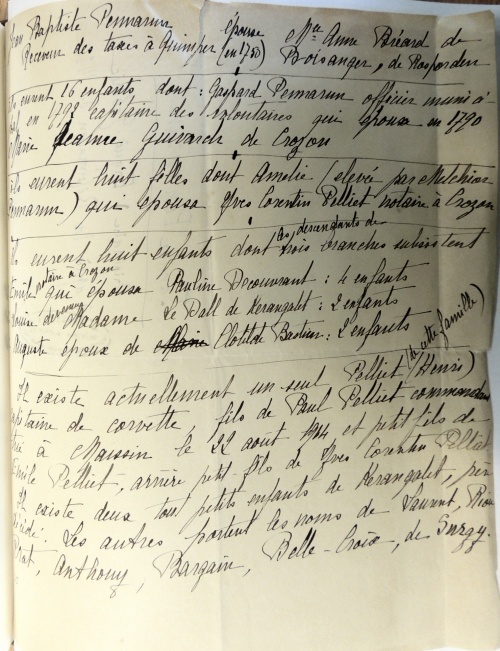 Jean Baptiste Penmarun épouse Mlle Anne Béard de
Receveur des taxes à Quimper (en 1750) Boisanger, de Rosporden
Ils eurent 16 enfants dont : Gaspard Penmarun officier muni
en 1792 capitaine des volontaires qui épousa en 1790
Marie Jeanne Guivarch de Crozon
Ils eurent huit filles dont Amélie (élevée par Melchior
Penmarun) qui épousa Yves Corentin Pelliet notaire à Crozon
Ils eurent huit enfants dont les descendants de trois branches subsistent
Emile notaire à Crozon qui épousa Pauline Decourrant : 4 enfants
Louise devenue Madame Le Dall de Kerangalet : 2 enfants
Auguste époux de Clotilde Bastien : 2 enfants
Il existe actuellement un seul Pelliet (Henri) (de cette famille)
capitaine de corvette fils de Paul Pelliet commandant
tué à Maissin le 22 août 1914, et petit fils de
Emile Pelliet, arrière petit fils de Yves Corentin Pelliet
Il existe deux tout petits enfants de Kerangalet,
Les autres portent les noms de Laurent,
Anthony, Bargain, Belle-Croix, de Surgy.